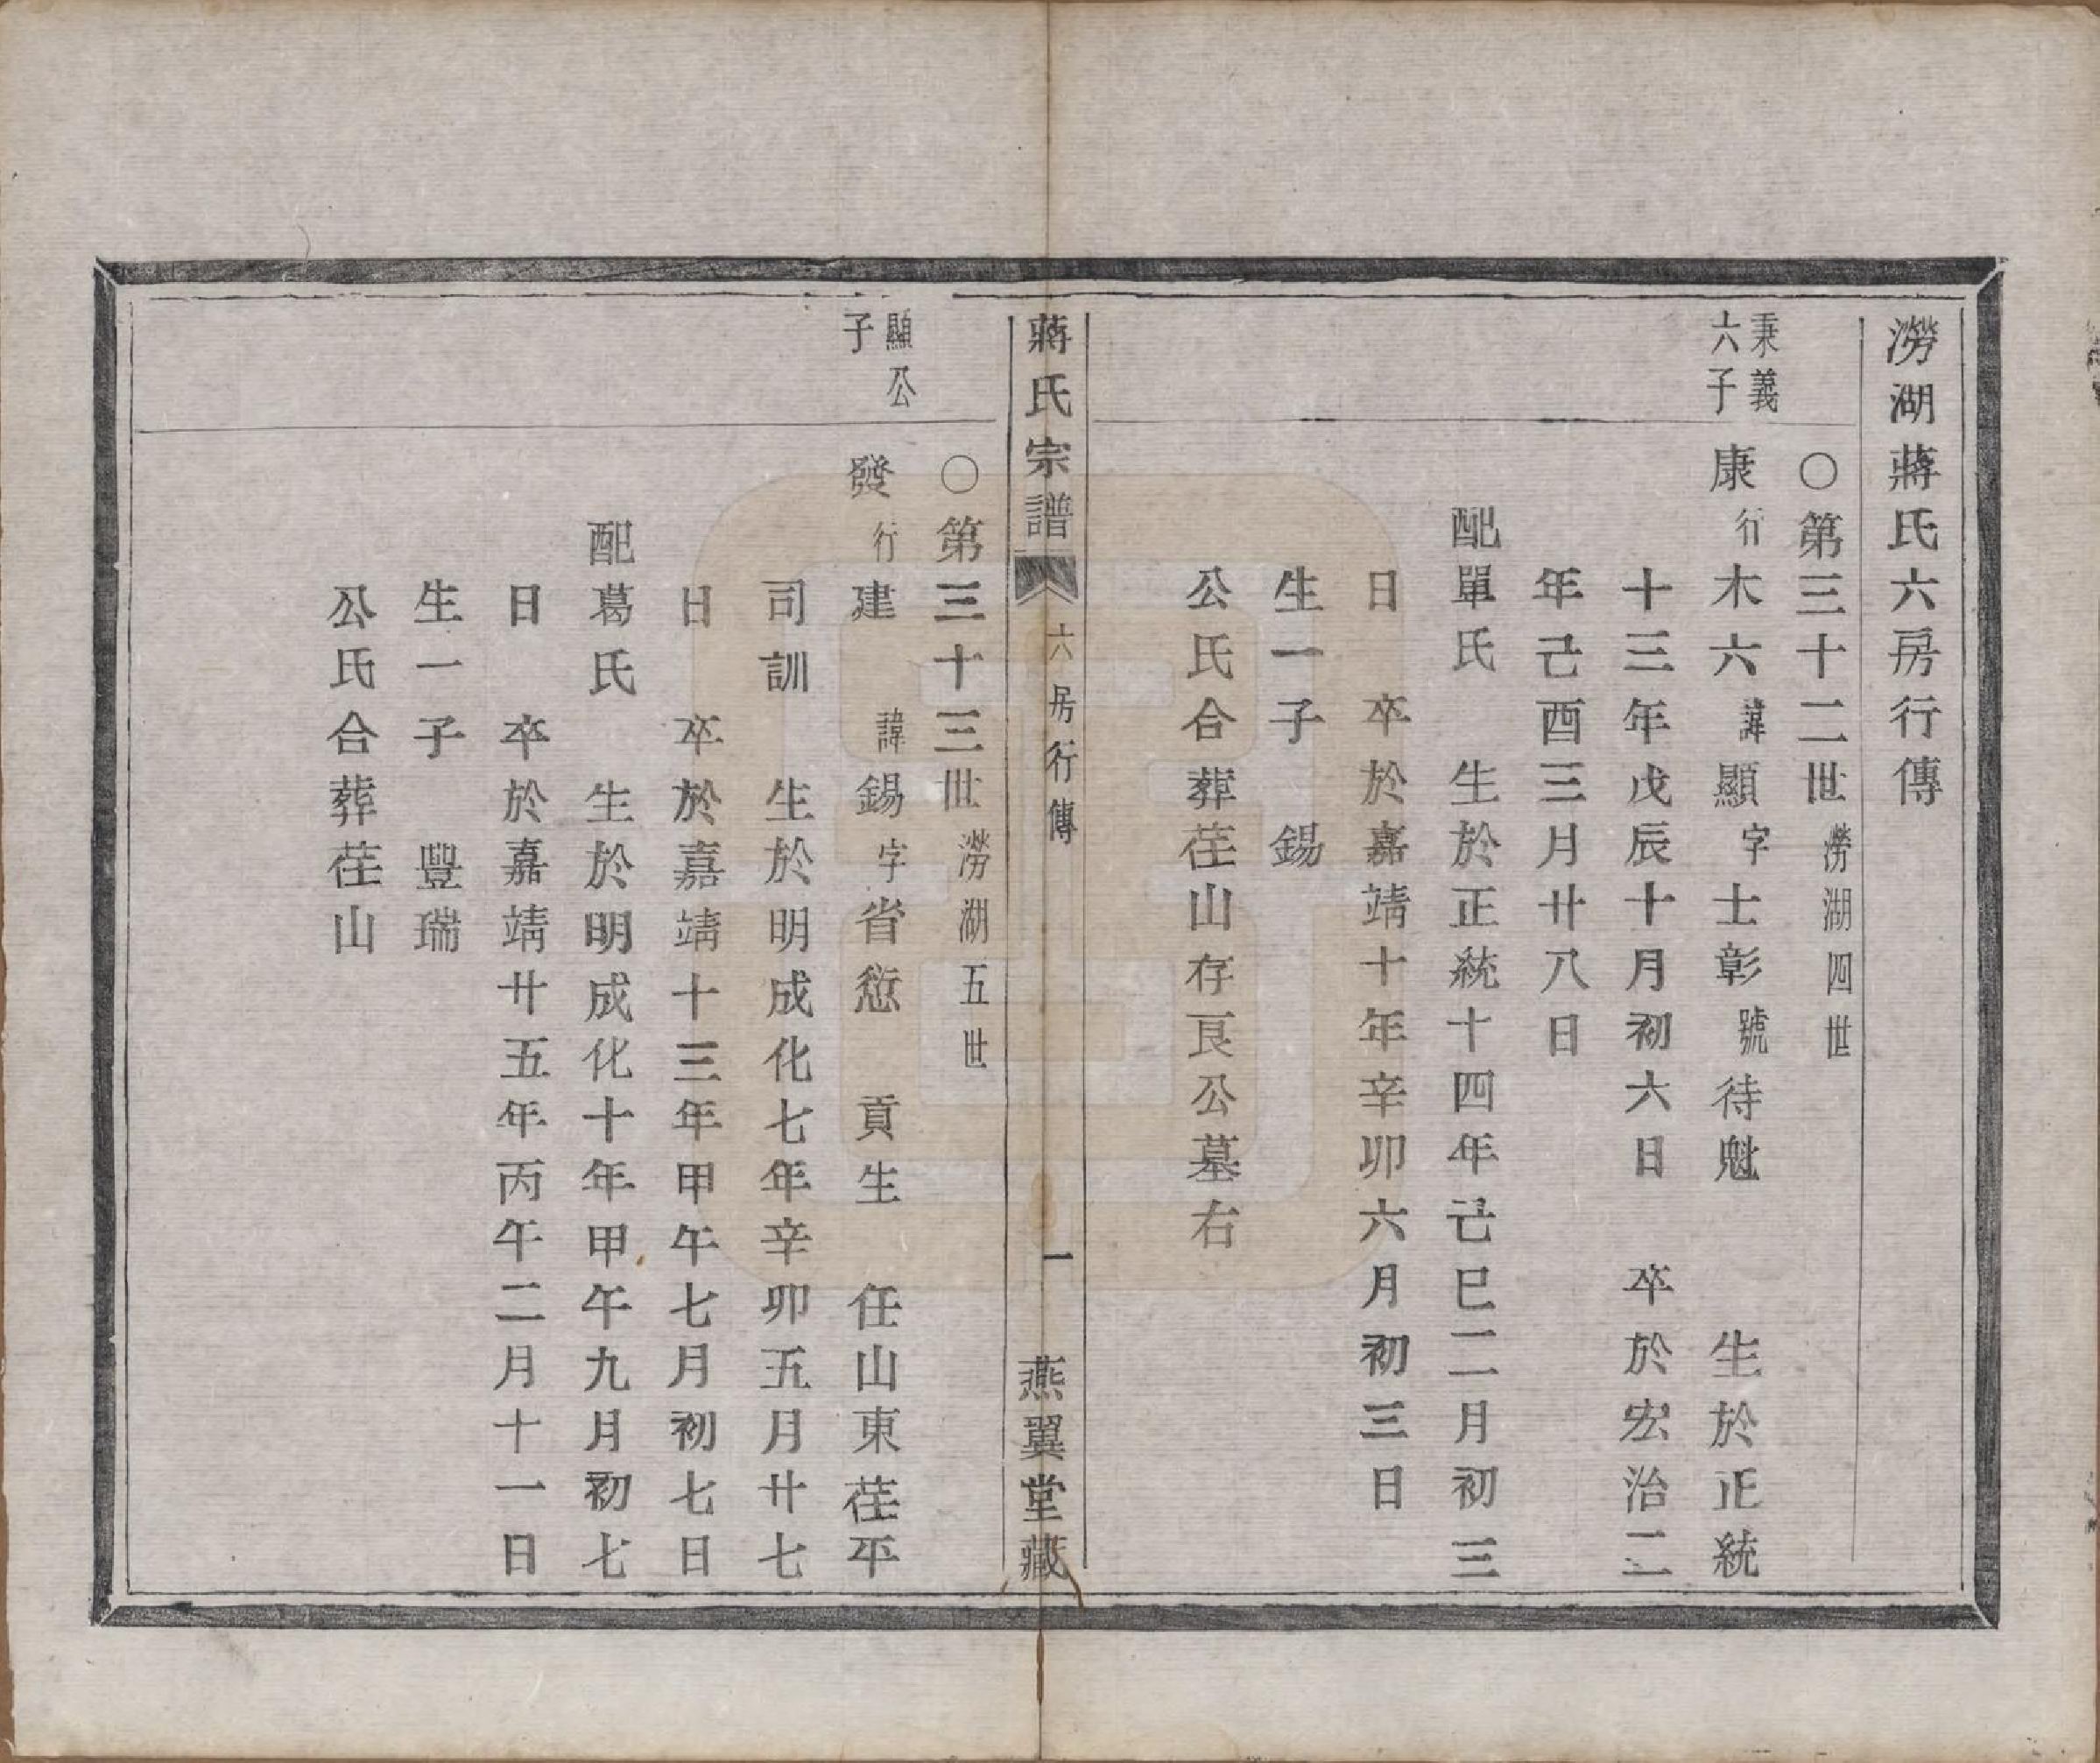 澇湖蔣氏六房行傳
○第三十二世澇湖四世
秉義
六子
康行木六諱顯字士彰號待魁　生於正統
十三年戊辰十月初六日　卒於宏治二
年己酉三月廿八日
配單氏　生於正統十四年己巳二月初三
日　卒於嘉靖十年辛卯六月初三日
生一子　錫
公氏合葬茬山存艮公墓右
蔣氏宗譜　六房行傳　一　燕翼堂藏
○第三十三世澇湖五世
顯公
子
發行建　諱錫字省愆　貢生　任山東茬平
司訓　生於明成化七年辛卯五月廿七
日　卒於嘉靖十三年甲午七月初七日
配葛氏　生於明成化十年甲午九月初七
日　卒於嘉靖廿五年丙午二月十一日
生一子　豐瑞
公氏合葬茬山